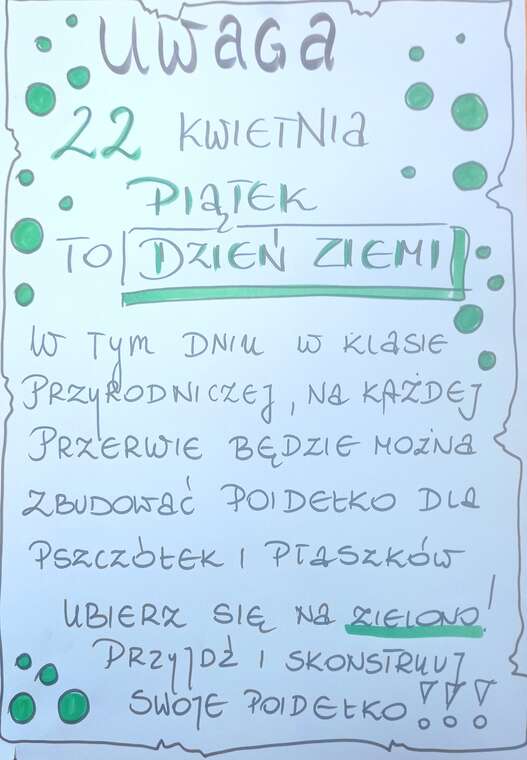 UWAGA
22 KWIETNIA
PIĄTEK
TO DZIEŃ ZIEMI
W TYM DNIU W KLASIE
PRZYRODNICZEJ, NA KAŻDEJ
PRZERWIE BĘDZIE MOŻNA
ZBUDOWAĆ POIDEŁKO DLA
PSZCZÓŁEK I PTASZKÓW
UBIERZ SIĘ NA ZIELONO!
PRZYJDŹ I SKONSTRUUJ
SWOJE POIDEŁKO!!!